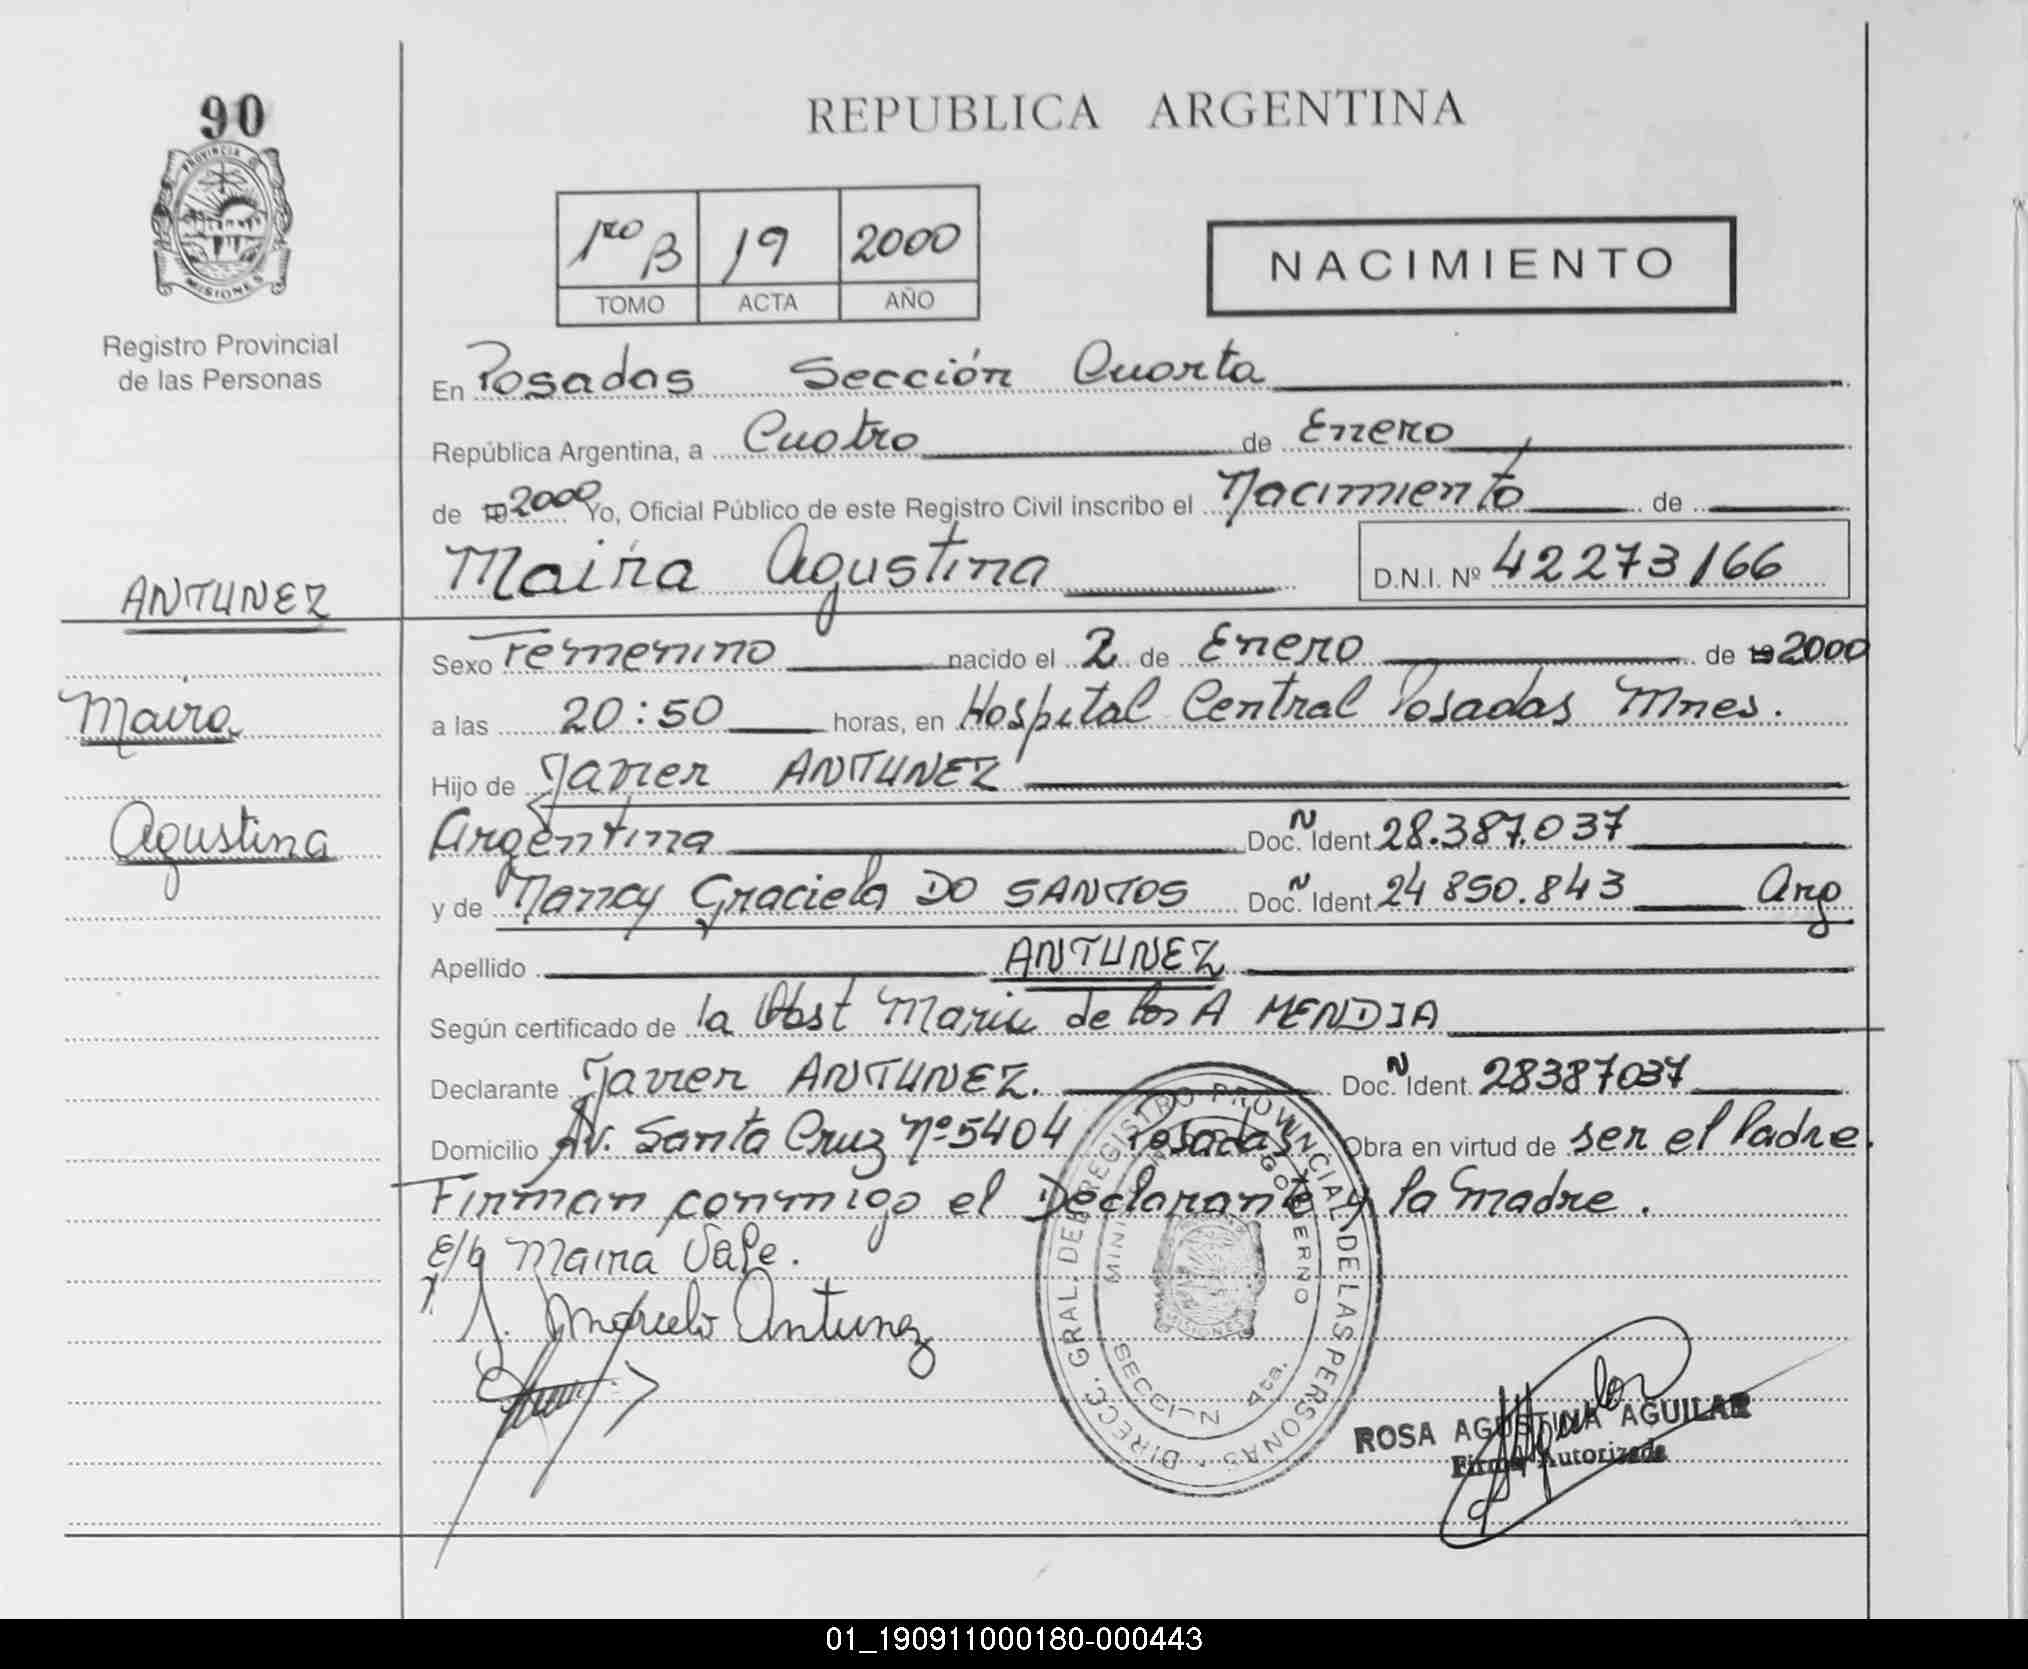 90
PROVINCIA DE
MISIONES
Registro Provincial
de las Personas
REPUBLICA ARGENTINA
1ro B 19 2000
TOMO ACTA AÑO
NACIMIENTO
En Posadas Sección Cuarta
República Argentina, a Cuatro de Enero
de 19 2000 Yo, Oficial Público de este Registro Civil inscribo el Nacimiento de
Maira Agustina D.N.I. Nº 42273166
ANTUNEZ
Maira
Agustina
Sexo Femenino nacido el 2 de Enero de 19 2000
a las 20:50 horas, en Hospital Central Posadas Mnes.
Hijo de Javier ANTUNEZ
Argentina Doc. N Ident. 28.387.037
y de Nancy Graciela DO SANTOS Doc. N Ident. 24 850.843 Arg
Apellido ANTUNEZ
Según certificado de la Obst Maria de los A MENDIA
Declarante Javier ANTUNEZ. Doc. N Ident. 28387037
Domicilio Av. Santa Cruz nº 5404 Posadas Obra en virtud de ser el Padre.
Firman conmigo el Declarante y la madre.
E/L Maira Vale.
J. Marcelo Antunez
DIRECC. GRAL. DEL REGISTRO PROVINCIAL DE LAS PERSONAS
GOBIERNO
SECCION 4ta.
MISIONES
ROSA AGUSTINA AGUILAR
Firma Autorizada
01_190911000180-000443